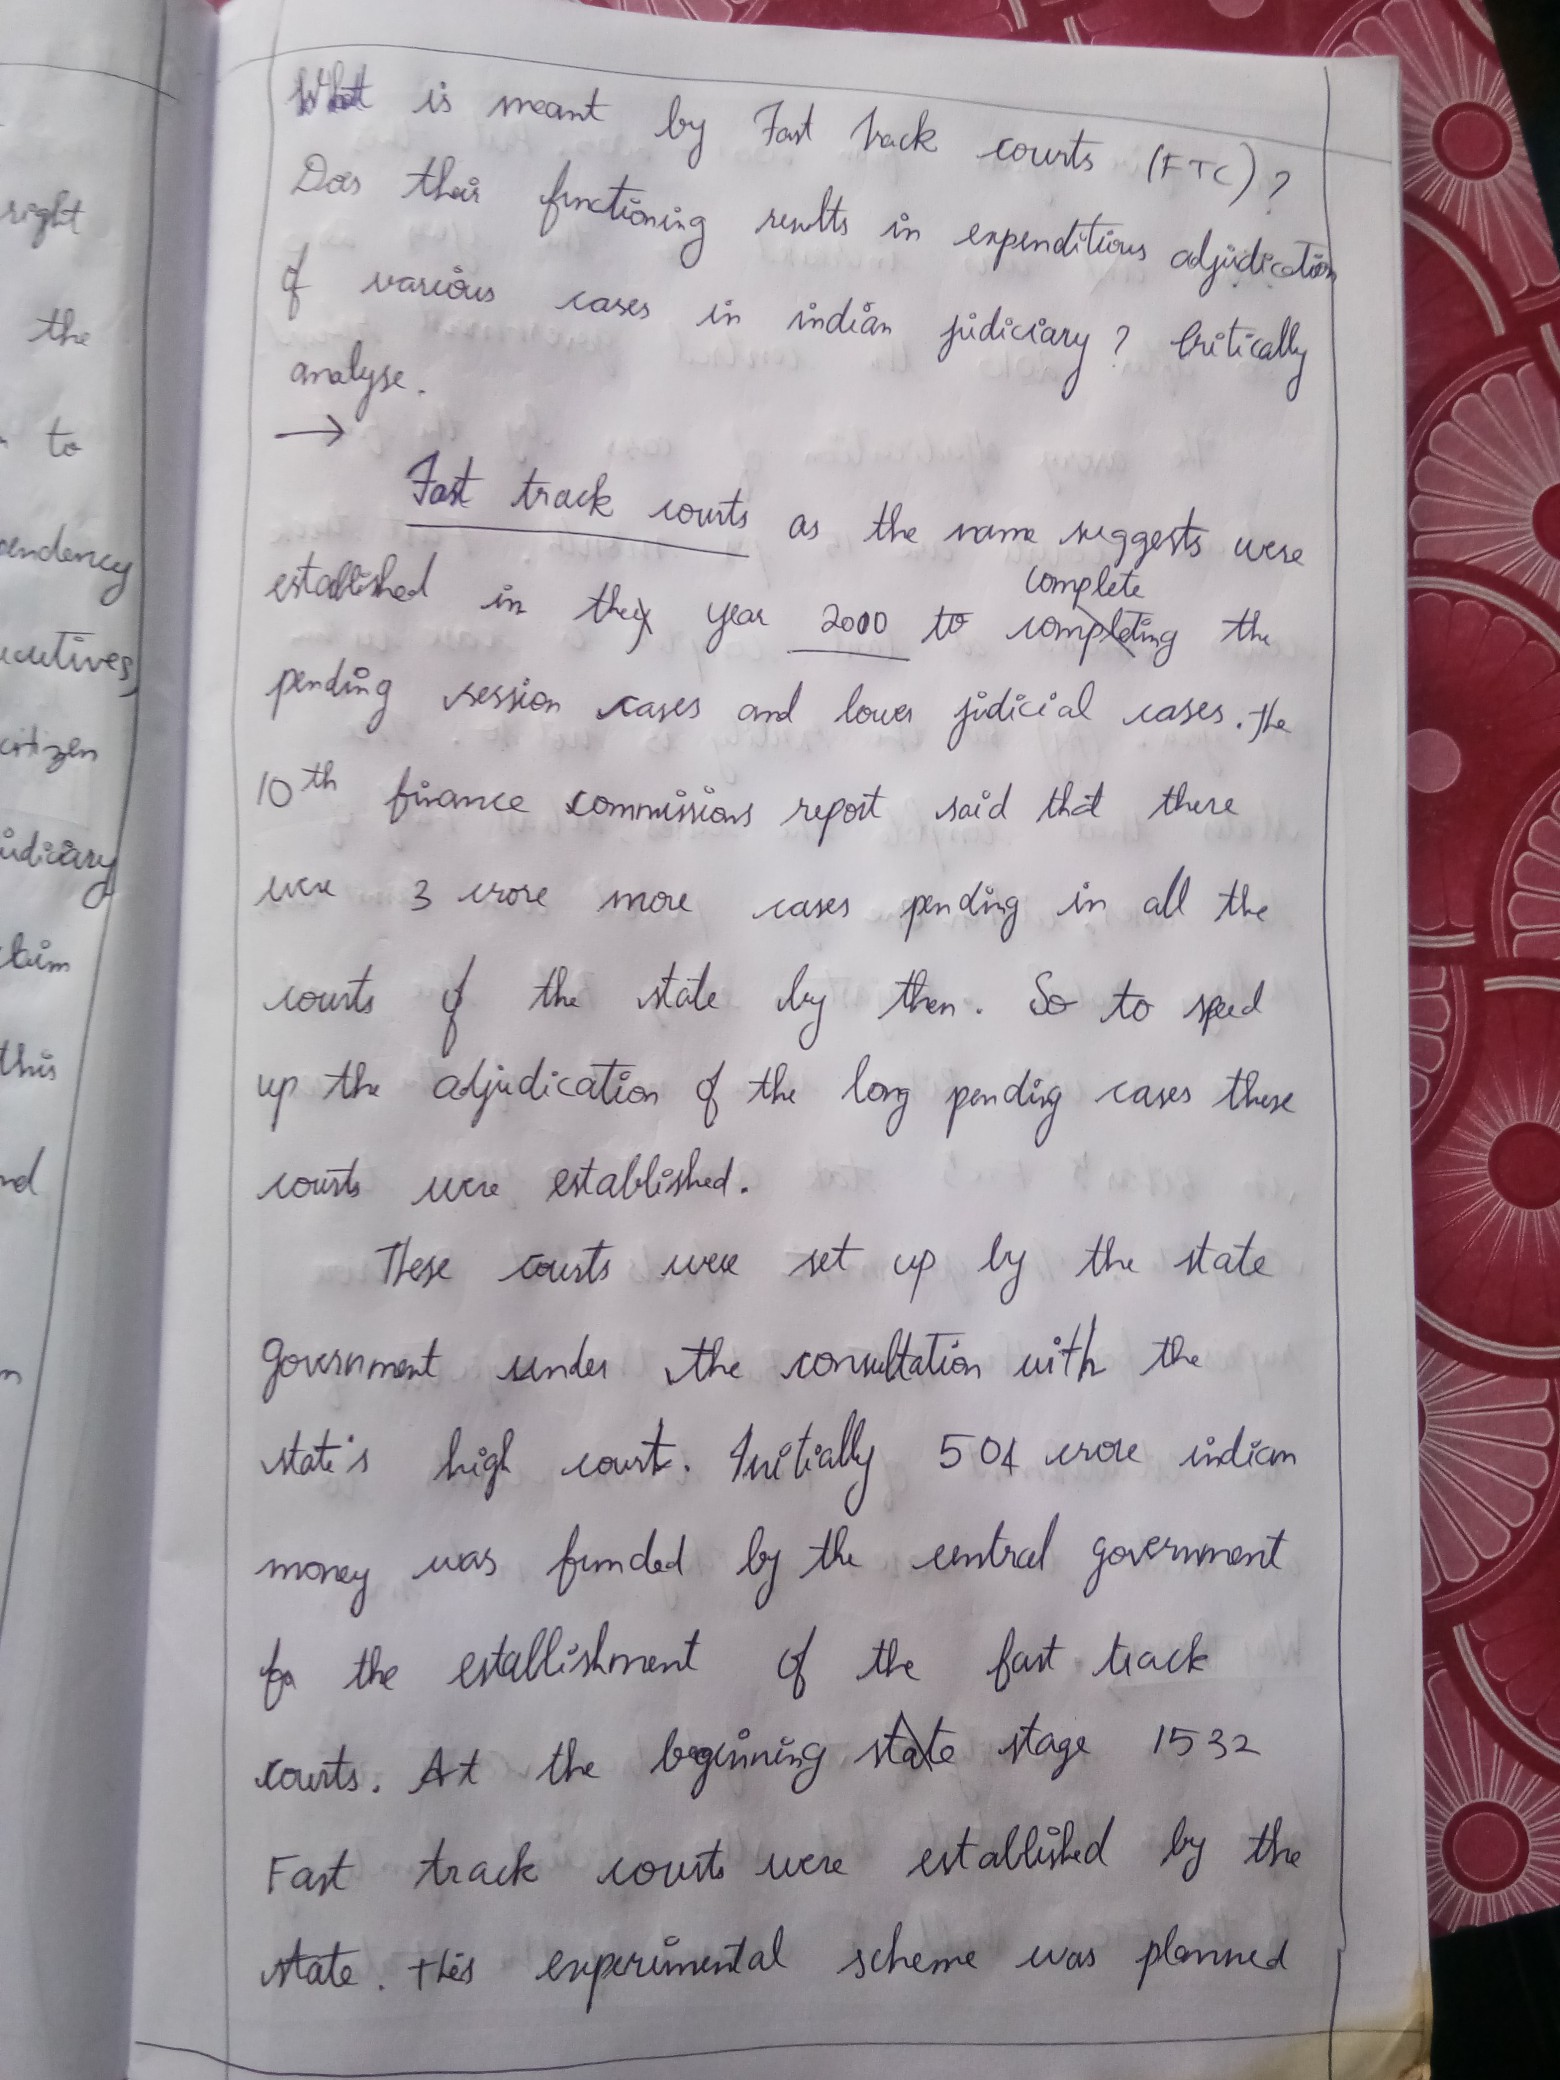 right
the
to
pendency
citizen
judiciary
claim
this
What is meant by Fast track courts (FTC)?
Does their functioning results in expenditious adjudication
of various cases in indian judiciary? Critically
analyse.
→
Fast track courts as the name suggests were
established in they year 2000 to completing complete the
pending session cases and lower judicial cases. The
10th finance commissions report said that there
were 3 crore more cases pending in all the
courts of the state by then. So to speed
up the adjudication of the long pending cases these
courts were established.
These courts were set up by the state
government under the consultation with the
state's high court. Initially 504 crore indian
money was funded by the central government
for the establishment of the fast track
courts. At the beginning state stage 1532
Fast track courts were established by the
state. This experimental scheme was planned